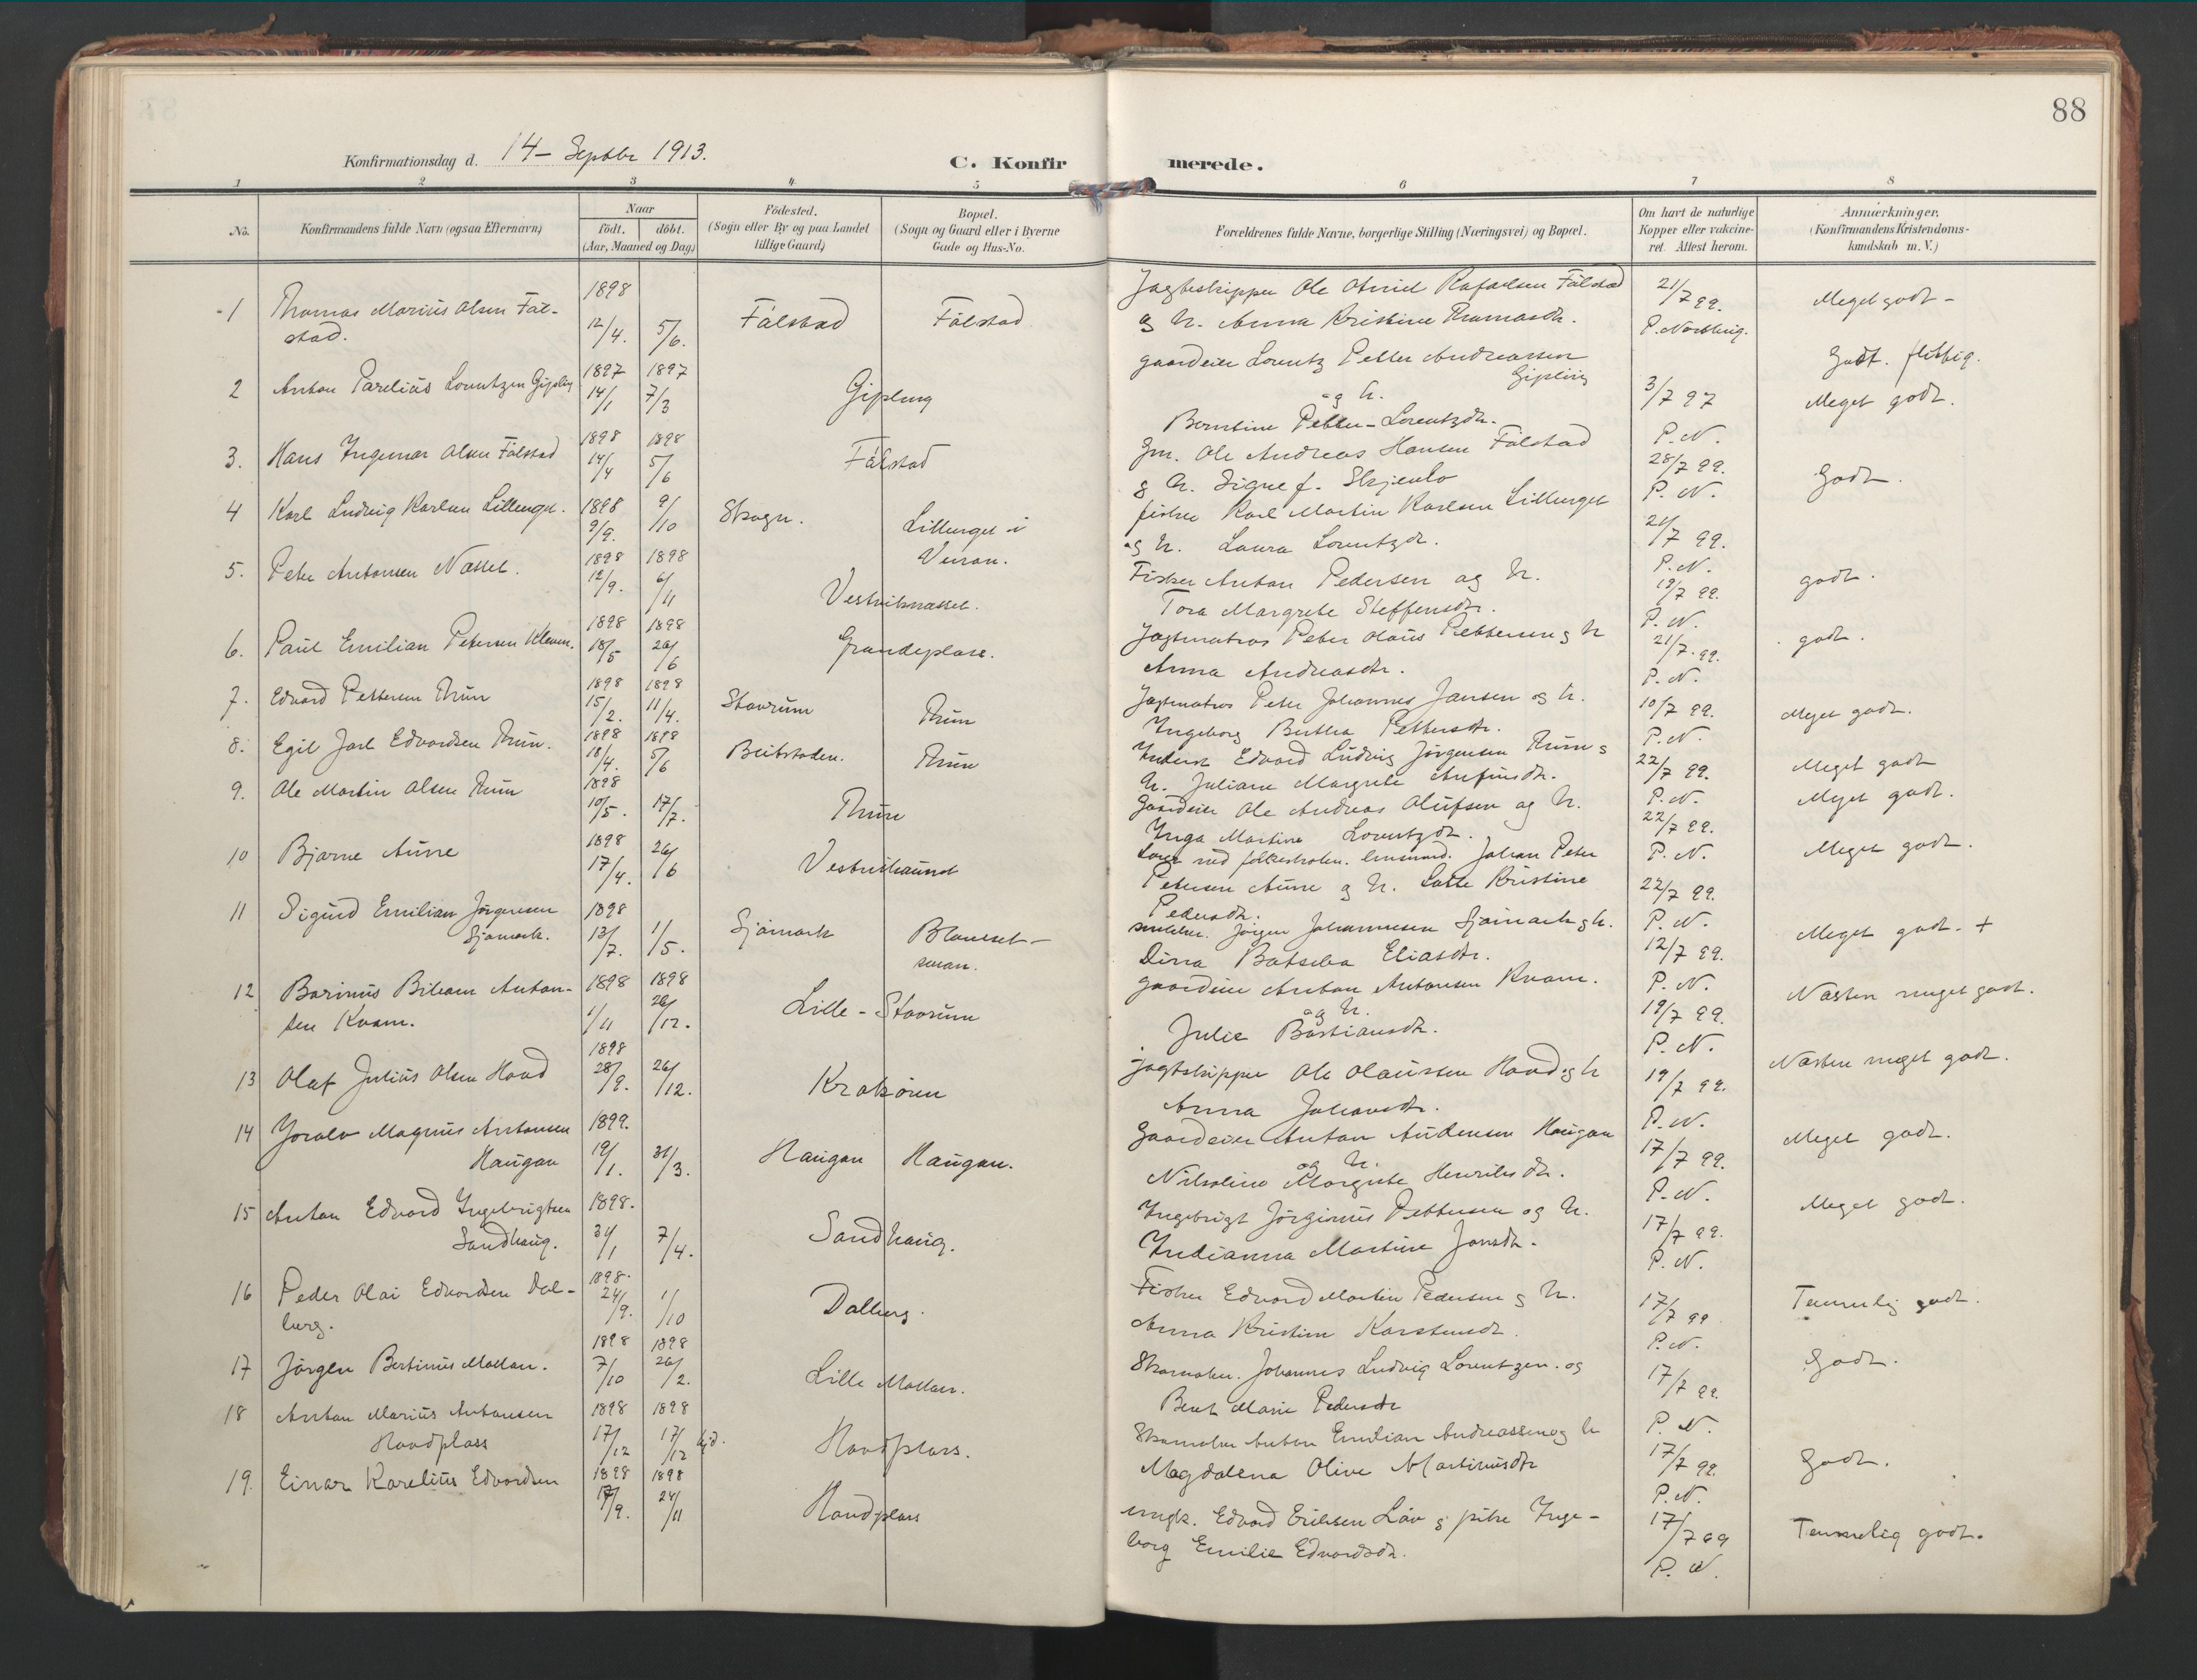 88
Konfirmationsdag d. 14 - Septbr 1913.
C. Konfirmerede.
1 2 3 4 5 6 7 8
No.
Konfirmandens fulde Navn (ogsaa Efternavn)
Naar
födt. döbt.
(Aar, Maaned og Dag)
Födested.
(Sogn eller By og paa Landet
tillige Gaard)
Bopæl.
(Sogn og Gaard eller i Byerne
Gade og Hus-No.
Forældrenes fulde Navne, borgerlige Stilling (Næringsvei) og Bopæl.
Om havt de naturlige
Kopper eller vakcine-
ret. Attest herom.
Anmærkninger.
(Konfirmandens Kristendoms-
kundskab m. V.)
1 Thomas Marius Olsen Fål-
stad.
1898
12/4. 5/6.
Fålstad Fålstad
Jagteskipper Ole Rafaelsen Fålstad
og h. Anna Kristine Thomasdr.
21/7 99.
Meget godt -
Godt. flittig.
2 Anton Parelius Lorentzen Gipling
1897 1897
14/1 7/3
Gipling
gaardeier Lorentz Petter Andreassen
Gipling
og h.
Berntine Petter-Lorentzdr.
3/7 97
P. N.
Meget godt.
3. Hans Ingemar Olsen Fålstad
1898 1898
14/4 5/6
Fålstad
Gm. Ole Andreas Hansen Fålstad
g h. Signe f. Skjenlo
28/7 99.
P. N.
Godt.
4 Karl Ludvig Karlsen Lillenget.
1898
9/9. 9/10
Skogn.
Lillenget i
fisker Karl Martin Karlsen Lillenget
og h. Laura Lorentzdr.
21/7 99.
P. N.
5. Peter Antonsen Næsset.
1898 1898
12/9. 6/11
Vestviknæsset.
Fisker Anton Pedersen og h.
Tora Margrete Steffensdr.
19/7 99.
P. N.
godt.
6. Paul Emilian Petersen Kleven.
1898 1898
18/5 26/6
Grandeplass.
Jagtmatros Peter Olaus Pettersen g h
Anna Andreasdr.
21/7. 99.
P. N.
godt.
7. Edvard Pettersen Thun
1898 1898
15/2. 11/4.
Stavrum Thun
Jagtmatros Peter Johannes Jansen og h.
Ingeborg Pettersdr.
10/7 99.
P. N.
Meget godt.
8. Egil Jarl Edvardsen Thun.
1898 1898
18/4. 5/6
Beitstaden. Thun
Edvard Ludvig Jörgensen Thun g
h. Juliane Margrete Anfinsdr.
22/7 99.
P. N.
Meget godt
9. Ole Martin Olsen Thun
1898
10/5. 17/7.
Thun
Gaardeier Ole Andreas Olufsen og h.
Inga Martina Lorentzdr.
22/7 99.
P. N.
Meget godt.
10 Bjarne Aune
1898
17/4. 26/6
Johan Peter
Petersen Aune g h. Lotte Kristine
Pedersdr.
22/7 99.
P. N.
Meget godt.
11 Sigurd Emilian Jörgensen
Sjömark.
1898
13/7. 1/5.
Sjömark
Jörgen Johannesen Sjömark g h.
Dina Batseba Eliasdr.
12/7 99.
P. N.
Meget godt. +
12 Barinus Bileam Anton-
sen Kvam.
1898 1898
1/11 26/12.
Lille-Stavrum
gaardeier Anton Antonsen Kvam.
og h.
Julie Bastiansdr.
19/7 99.
P. N.
Næsten meget godt.
13 Olaf Julius Olsen Hovd
1898
28/9. 26/12.
Krakören
jagtskipper Ole Olaussen Hovd og h
Anna Johansdr.
19/7 99.
P. N.
Næsten meget godt.
14 Joralv Magnus Antonsen
Haugan
1899.
19/1. 31/3.
Haugan Haugan.
Gaardeier Anton Andersen Haugan
og h.
Nikoline Margrete Henriksdr.
17/7 99.
P. N.
Meget godt.
15 Anton Edvard Ingebrigtsen
Sandhaug.
1898.
31/1 7/4.
Sandhaug.
Ingebrigt Jörginus Pettersen og h.
Indianna Martine Jonsdr.
17/7 99.
P. N.
Meget godt.
16 Peder Olai Edvardsen Dal-
berg.
1898.
24/9. 1/10
Dalberg.
Fisker Edvard Martin Pedersen g h.
Anna Kristine Karstensdr.
17/7 99
P. N.
Temmelig godt.
17 Jörgen Bertinus Mollan.
1898 1898
7/10 26/2.
Lille Mollan.
Skomaker. Johannes Ludvig Lorentzen. og
Beret Marie Pedersdr
17/7 99.
P. N.
Godt.
18 Anton Marius Antonsen
Hovdplass
1898 1898
17/12 17/12 hjd.
Hovdplass.
Skomaker Anton Emilian Andreassen og h
Magdalena Olive Martinusdr
17/7 99.
P. N.
Godt.
19. Einar Karelius Edvardsen
1898 1898
17/9. 24/11
Hovdplass
ungk. Edvard Eriksen Löv g pike Inge-
borg Emilie Edvardsdr.
17/7 99
P. N.
Temmelig godt.